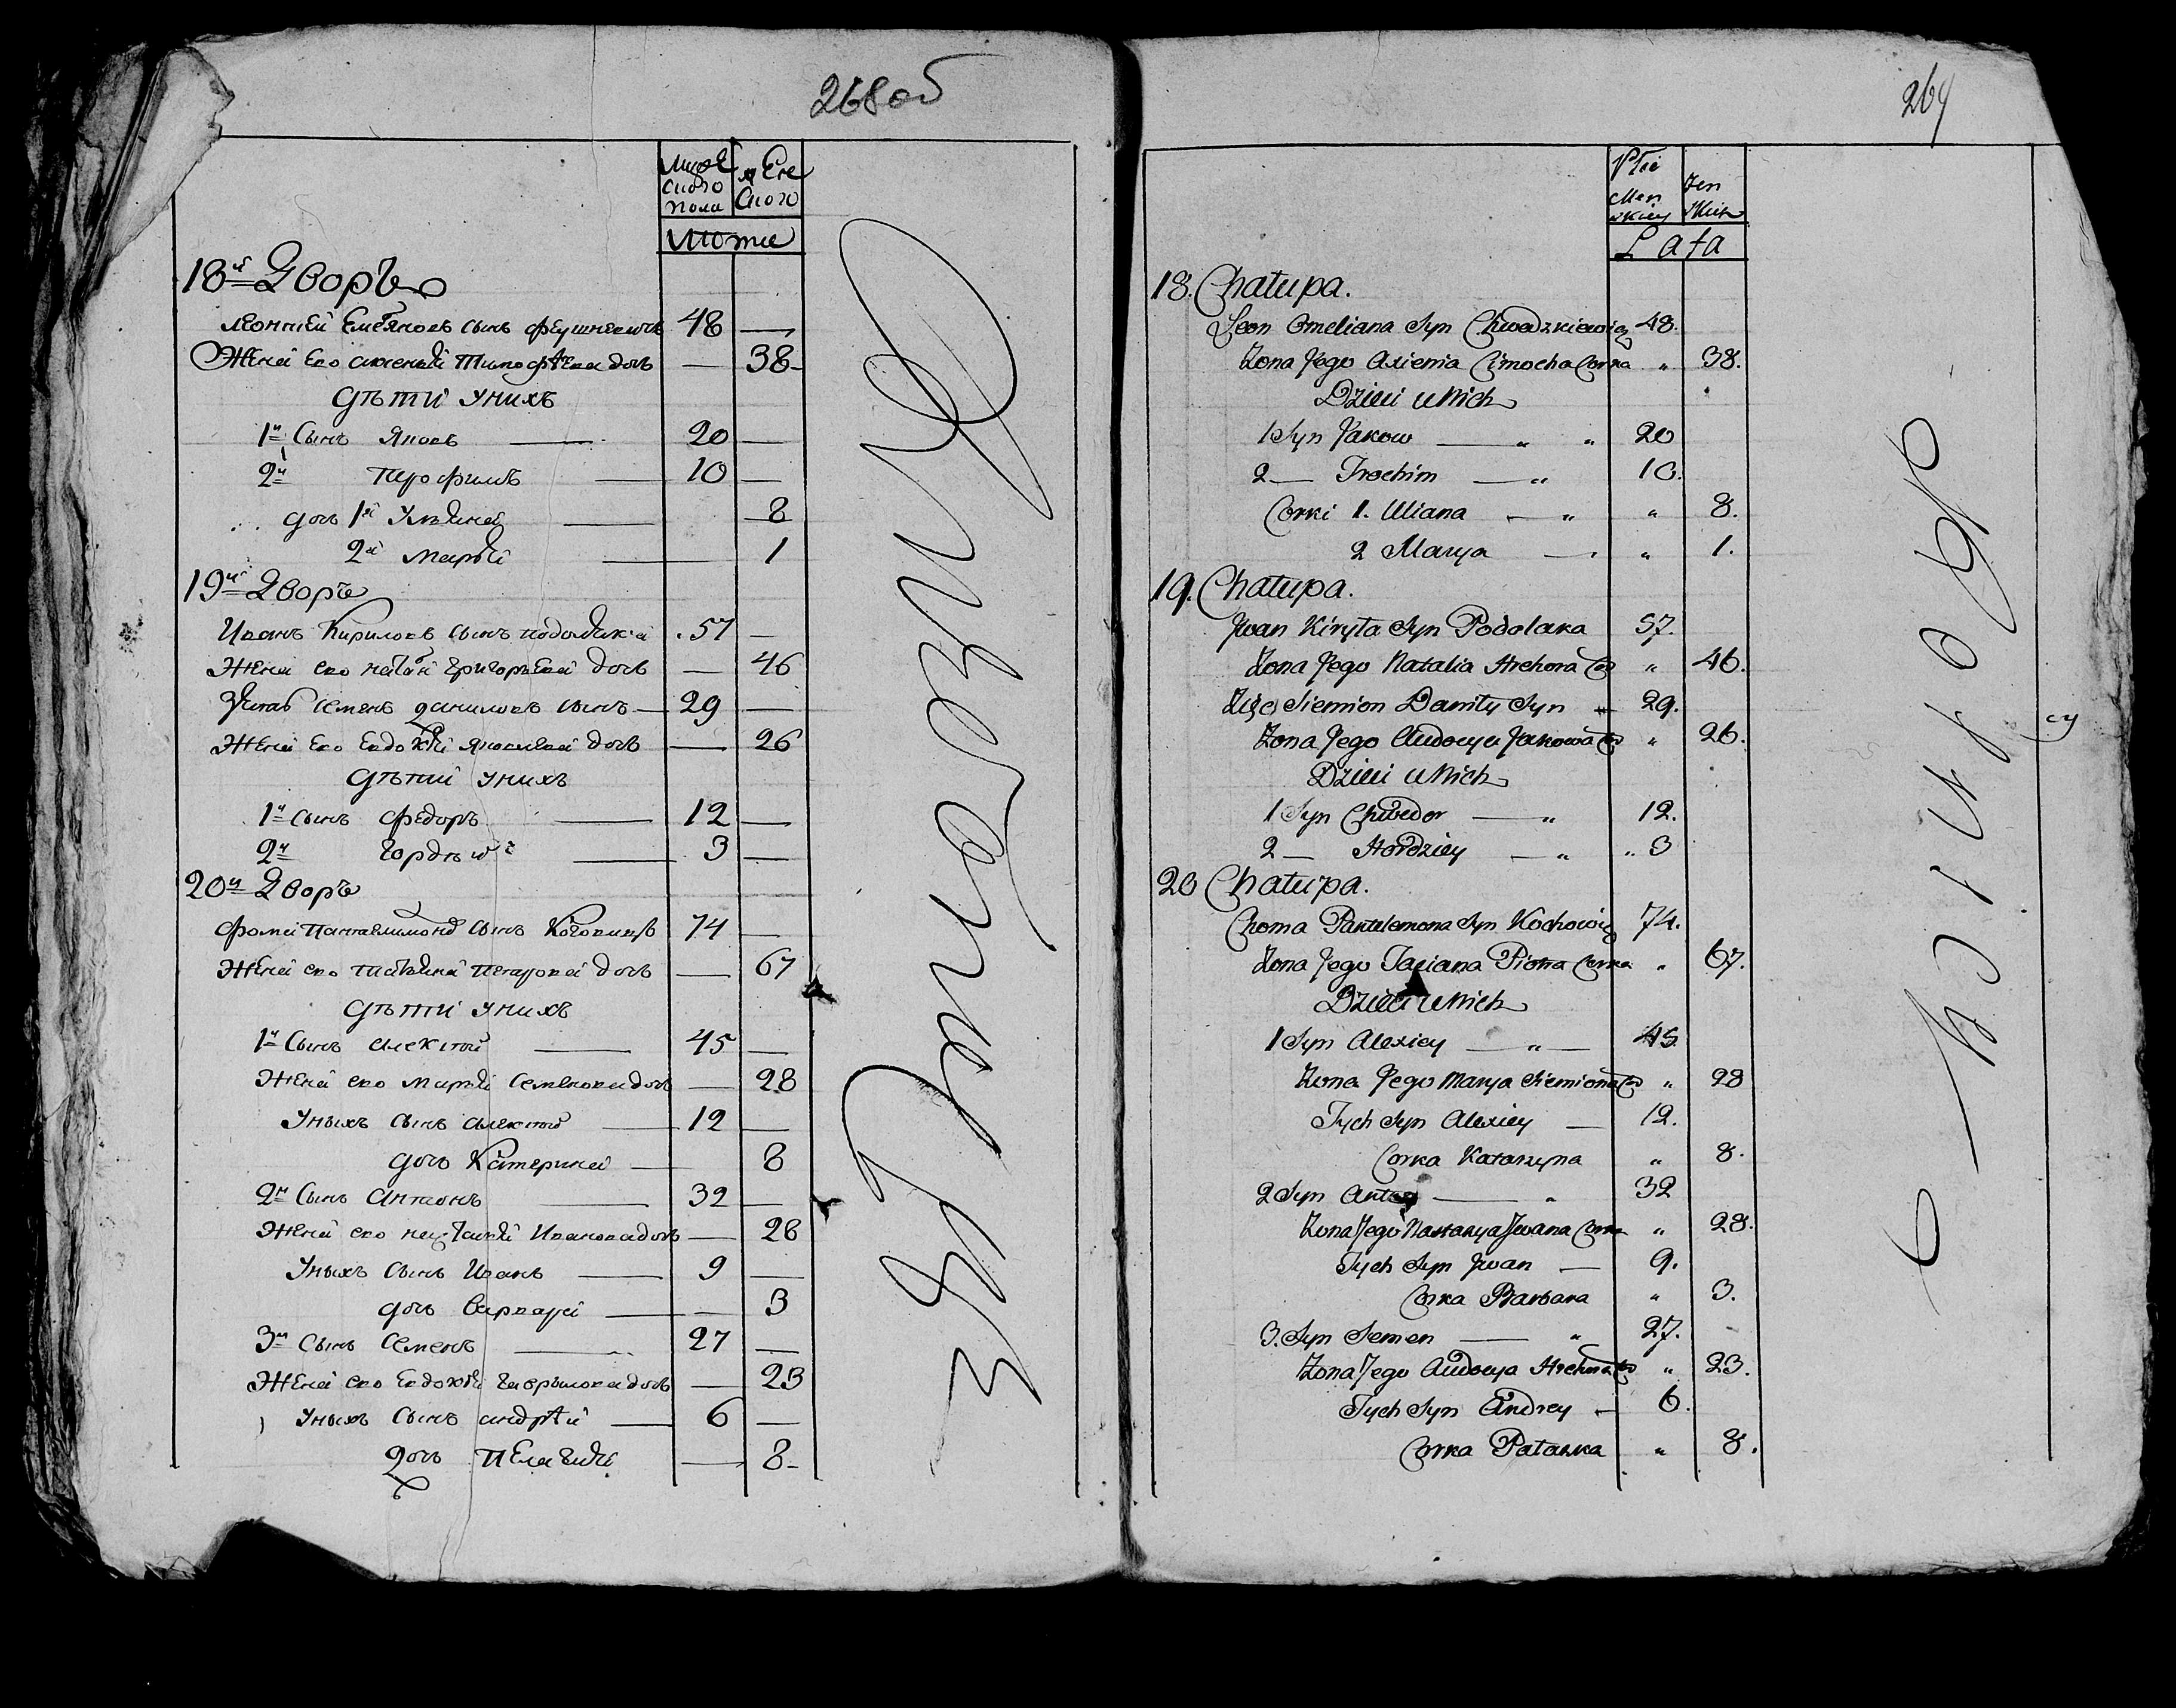 268об
Мужескаго пола
Женскаго
Лета
18й Дворъ
Леонтей Емельяновъ сынъ
48 —
Жена Его Аксенья Тимофѣева дочь — 38
дѣти у нихъ
1й Сынъ Яковъ — 20 —
2й Трофимъ — 10 —
дочь 1я Ульяна — 8
2я Марья — 1
19й Дворъ
Иванъ Кириловъ сынъ Подоляка 57 —
Жена ево Наталя Григорьева дочь — 46
Зять Семенъ Даниловъ сынъ — 29 —
Жена Ево Евдокия Яковлева дочь — 26
дѣти у нихъ
1й сынъ Федоръ — 12 —
2й Гордѣй — 3 —
20й Дворъ
Фома Пантелимоновъ сынъ 74 —
Жена ево Татьяна Петрова дочь — 67
дѣти у нихъ
1й Сынъ Алексѣй — 45 —
Жена ево Марья Семенова дочь — 28
У ныхъ сынъ Алексѣй — 12 —
дочь Катерина — 8
2й Сынъ Антонъ — 32 —
Жена ево Настасья Иванова дочь — 28
У ныхъ сынъ Иванъ — 9 —
дочь Варвара — 3
3й Сынъ Семенъ — 27 —
Жена ево Евдокия Гаврылова дочь — 23
У ныхъ сынъ Андрѣй — 6 —
Дочь Пелагия — 8
269
Płci Menskiey
Zenskich
Lata
18. Chałupa.
Leon Omeliana Syn Chwedzkiewicz 48.
Zona Jego Axienia Cimocha Corka „ 38.
Dzieci u Nich
1 Syn Jakow — „ „ 20
2 — Trochim — „ 10.
Corki 1. Uliana — „ „ 8.
2 Marya — „ 1.
19. Chałupa.
Jwan Kiryła Syn Podolaka 57.
Zona Jego Natalia Hrehora Cor „ 46.
Zięć Siemion Daniły Syn — 29.
Zona Jego Audocya Jakowa Cor „ 26.
Dzieci u Nich
1 Syn Chwedor — „ 12.
2 — Hordziey — „ „ 3
20 Chałupa.
Choma Pantelemona Syn Kochowicz 74.
Zona Jego Taciana Piotra Corka „ 67.
Dzieci u Nich
1 Syn Alexiey — „ — 45
Zona Jego Marya Siemiona Cor „ 28
Tych Syn Alexiey — 12.
Corka Katarzyna „ 8.
2 Syn Anton — „ 32
Zona Jego Nastazya Jwana Corka „ 28.
Tych Syn Jwan — 9.
Corka Barbara „ 3.
3. Syn Semen — „ 27.
Zona Jego Audocya Hrehora Cor „ 23.
Tych Syn Andrey — 6.
Corka Pałaszka „ 8.